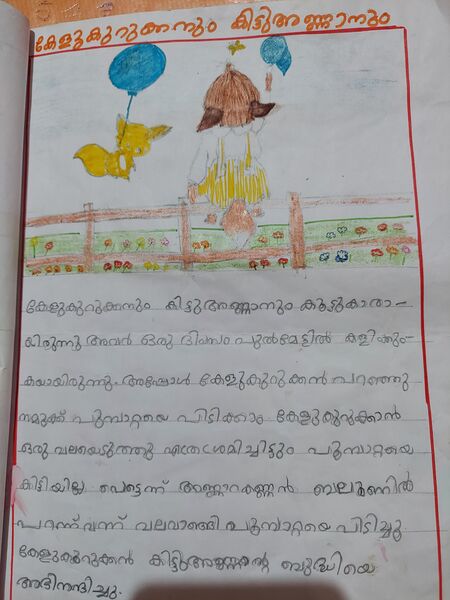 കേളുകുറുക്കനും കിട്ടുഅണ്ണാനും
കേളുകുറുക്കനും കിട്ടുഅണ്ണാനും കൂട്ടുകാരാ-
യിരുന്നു അവർ ഒരു ദിവസം പുൽമേട്ടിൽ കളിക്കും-
കയായിരുന്നു. അപ്പോൾ കേളുകുറുക്കൻ പറഞ്ഞു
നമുക്ക് പൂമ്പാറ്റയെ പിടിക്കാം കേളുകുറുക്കാൻ
ഒരു വലയെടുത്തു എത്രശ്രമിച്ചിട്ടും പൂമ്പാറ്റയെ
കിട്ടിയില്ല പെട്ടെന്ന് അണ്ണാറക്കണ്ണൻ ബലൂണിൽ
പറന്ന് വന്ന് വലവാങ്ങി പൂമ്പാറ്റയെ പിടിച്ചു
കേളുകുറുക്കൻ കിട്ടുഅണ്ണന്റെ ബുദ്ധിയെ
അഭിനന്ദിച്ചു.